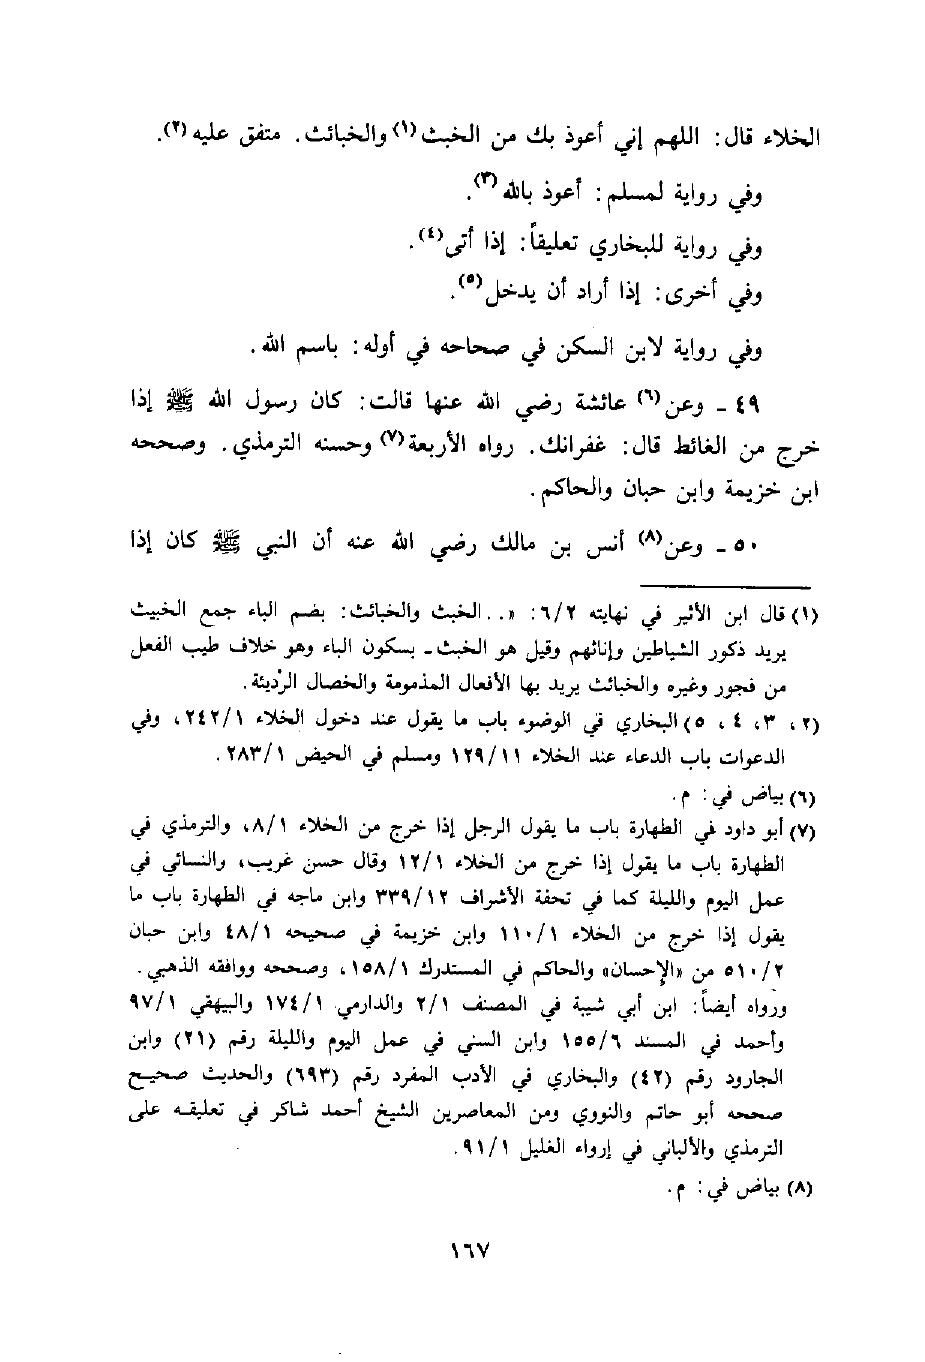 الخلاء قال: اللهم إني أعوذ بك من الخبث(١) والخبائث. متفق عليه(٢).
وفي رواية لمسلم: أعوذ بالله(٣).
وفي رواية للبخاري تعليقاً: إذا أتى(٤).
وفي أخرى: إذا أراد أن يدخل(٥).
وفي رواية لابن السكن في صحاحه في أوله: باسم الله.
٤٩ ـ وعن(٦) عائشة رضي الله عنها قالت: كان رسول الله ﷺ إذا
خرج من الغائط قال: غفرانك. رواه الأربعة(٧) وحسنه الترمذي. وصححه
ابن خزيمة وابن حبان والحاكم.
٥٠ ـ وعن(٨) أنس بن مالك رضي الله عنه أن النبي ﷺ كان إذا
(١) قال ابن الأثير في نهايته ٦/٢: «.. الخبث والخبائث: بضم الباء جمع الخبيث
يريد ذكور الشياطين وإناثهم وقيل هو الخبث ـ بسكون الباء وهو خلاف طيب الفعل
من فجور وغيره والخبائث يريد بها الأفعال المذمومة والخصال الرديئة.
(٢، ٣، ٤، ٥) البخاري في الوضوء باب ما يقول عند دخول الخلاء ٢٤٢/١، وفي
الدعوات باب الدعاء عند الخلاء ١٢٩/١١ ومسلم في الحيض ٢٨٣/١.
(٦) بياض في: م.
(٧) أبو داود في الطهارة باب ما يقول الرجل إذا خرج من الخلاء ٨/١، والترمذي في
الطهارة باب ما يقول إذا خرج من الخلاء ١٢/١ وقال حسن غريب، والنسائي في
عمل اليوم والليلة كما في تحفة الأشراف ٣٣٩/١٢ وابن ماجه في الطهارة باب ما
يقول إذا خرج من الخلاء ١١٠/١ وابن خزيمة في صحيحه ٤٨/١ وابن حبان
٥١٠/٢ من «الإحسان» والحاكم في المستدرك ١٥٨/١، وصححه ووافقه الذهبي.
ورواه أيضاً: ابن أبي شيبة في المصنف ٢/١ والدارمي ١٧٤/١ والبيهقي ٩٧/١
وأحمد في المسند ١٥٥/٦ وابن السني في عمل اليوم والليلة رقم (٢١) وابن
الجارود رقم (٤٢) والبخاري في الأدب المفرد رقم (٦٩٣) والحديث صحيح
صححه أبو حاتم والنووي ومن المعاصرين الشيخ أحمد شاكر في تعليقه على
الترمذي والألباني في إرواء الغليل ٩١/١.
(٨) بياض في: م.
١٦٧